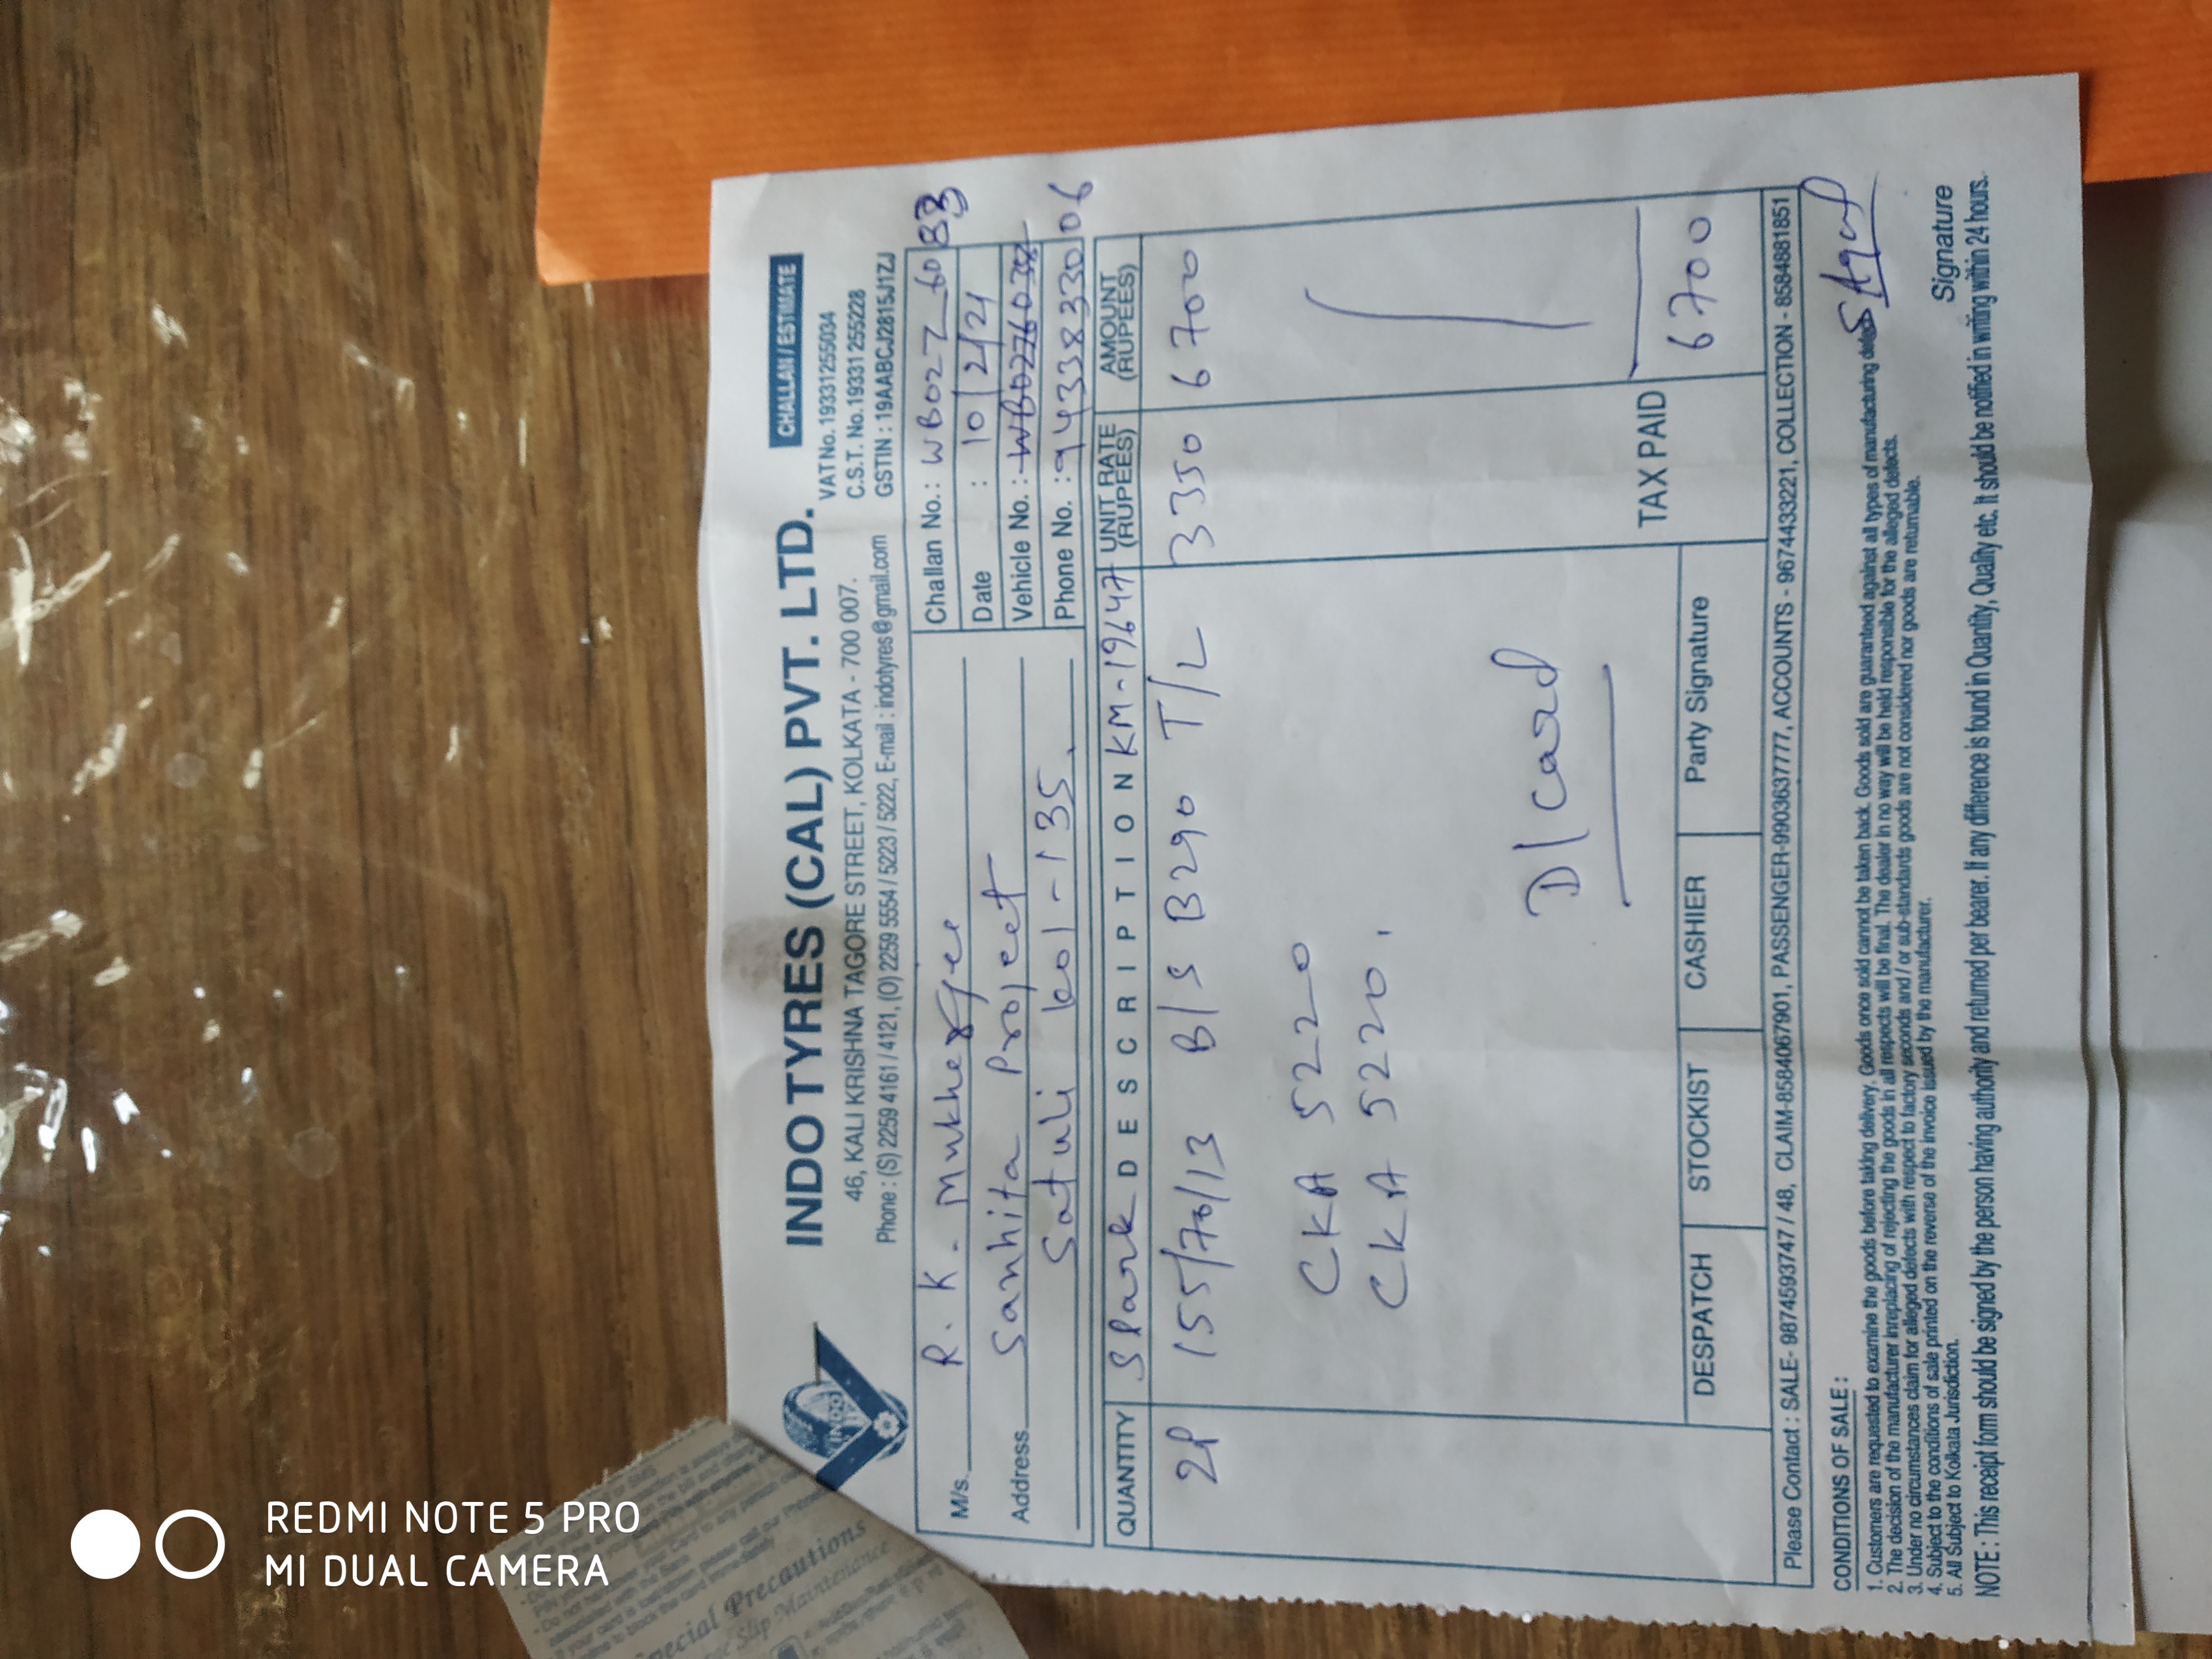 CHALLAN / ESTIMATE
INDO TYRES (CAL) PVT. LTD.
VAT No. 19331255034
46, KALI KRISHNA TAGORE STREET, KOLKATA - 700 007.
C.S.T. No. 19331255228
Phone : (S) 2259 4161 / 4121, (O) 2259 5554 / 5223 / 5222, E-mail : indotyres@gmail.com
GSTIN : 19AABCJ2815J1ZJ
M/s. R. K. Mukherjee
Challan No.: WB02Z 6083
Date : 10/2/21
Address Sanhita Project
Vehicle No. :
Satuli kol - 135.
Phone No. : 9433833006
QUANTITY Spark DESCRIPTION KM-19647 UNIT RATE (RUPEES) AMOUNT (RUPEES)
2P 155/70/13 B/S B290 T/L 3350 6700
CKA 5220
CKA 5220.
D/Card
TAX PAID 6700
DESPATCH STOCKIST CASHIER Party Signature
Please Contact : SALE- 9874593747 / 48, CLAIM-8584067901, PASSENGER-9903637777, ACCOUNTS - 9674433221, COLLECTION - 8584881851
CONDITIONS OF SALE :
1. Customers are requested to examine the goods before taking delivery. Goods once sold cannot be taken back. Goods sold are guaranteed against all types of manufacturing
2. The decision of the manufacturer inreplacing of rejecting the goods in all respects will be final. The dealer in no way will be held responsible for the alleged defects.
3. Under no circumstances claim for alleged defects with respect to factory seconds and / or sub-standards goods are not considered nor goods are returnable.
4. Subject to the conditions of sale printed on the reverse of the invoice issued by the manufacturer.
5. All Subject to Kolkata Jurisdiction.
Signature
NOTE : This receipt form should be signed by the person having authority and returned per bearer. If any difference is found in Quantity, Quality etc. It should be notified in writing within 24 hours.
INDO
Special Precautions
Slip Maintenance
REDMI NOTE 5 PRO
MI DUAL CAMERA